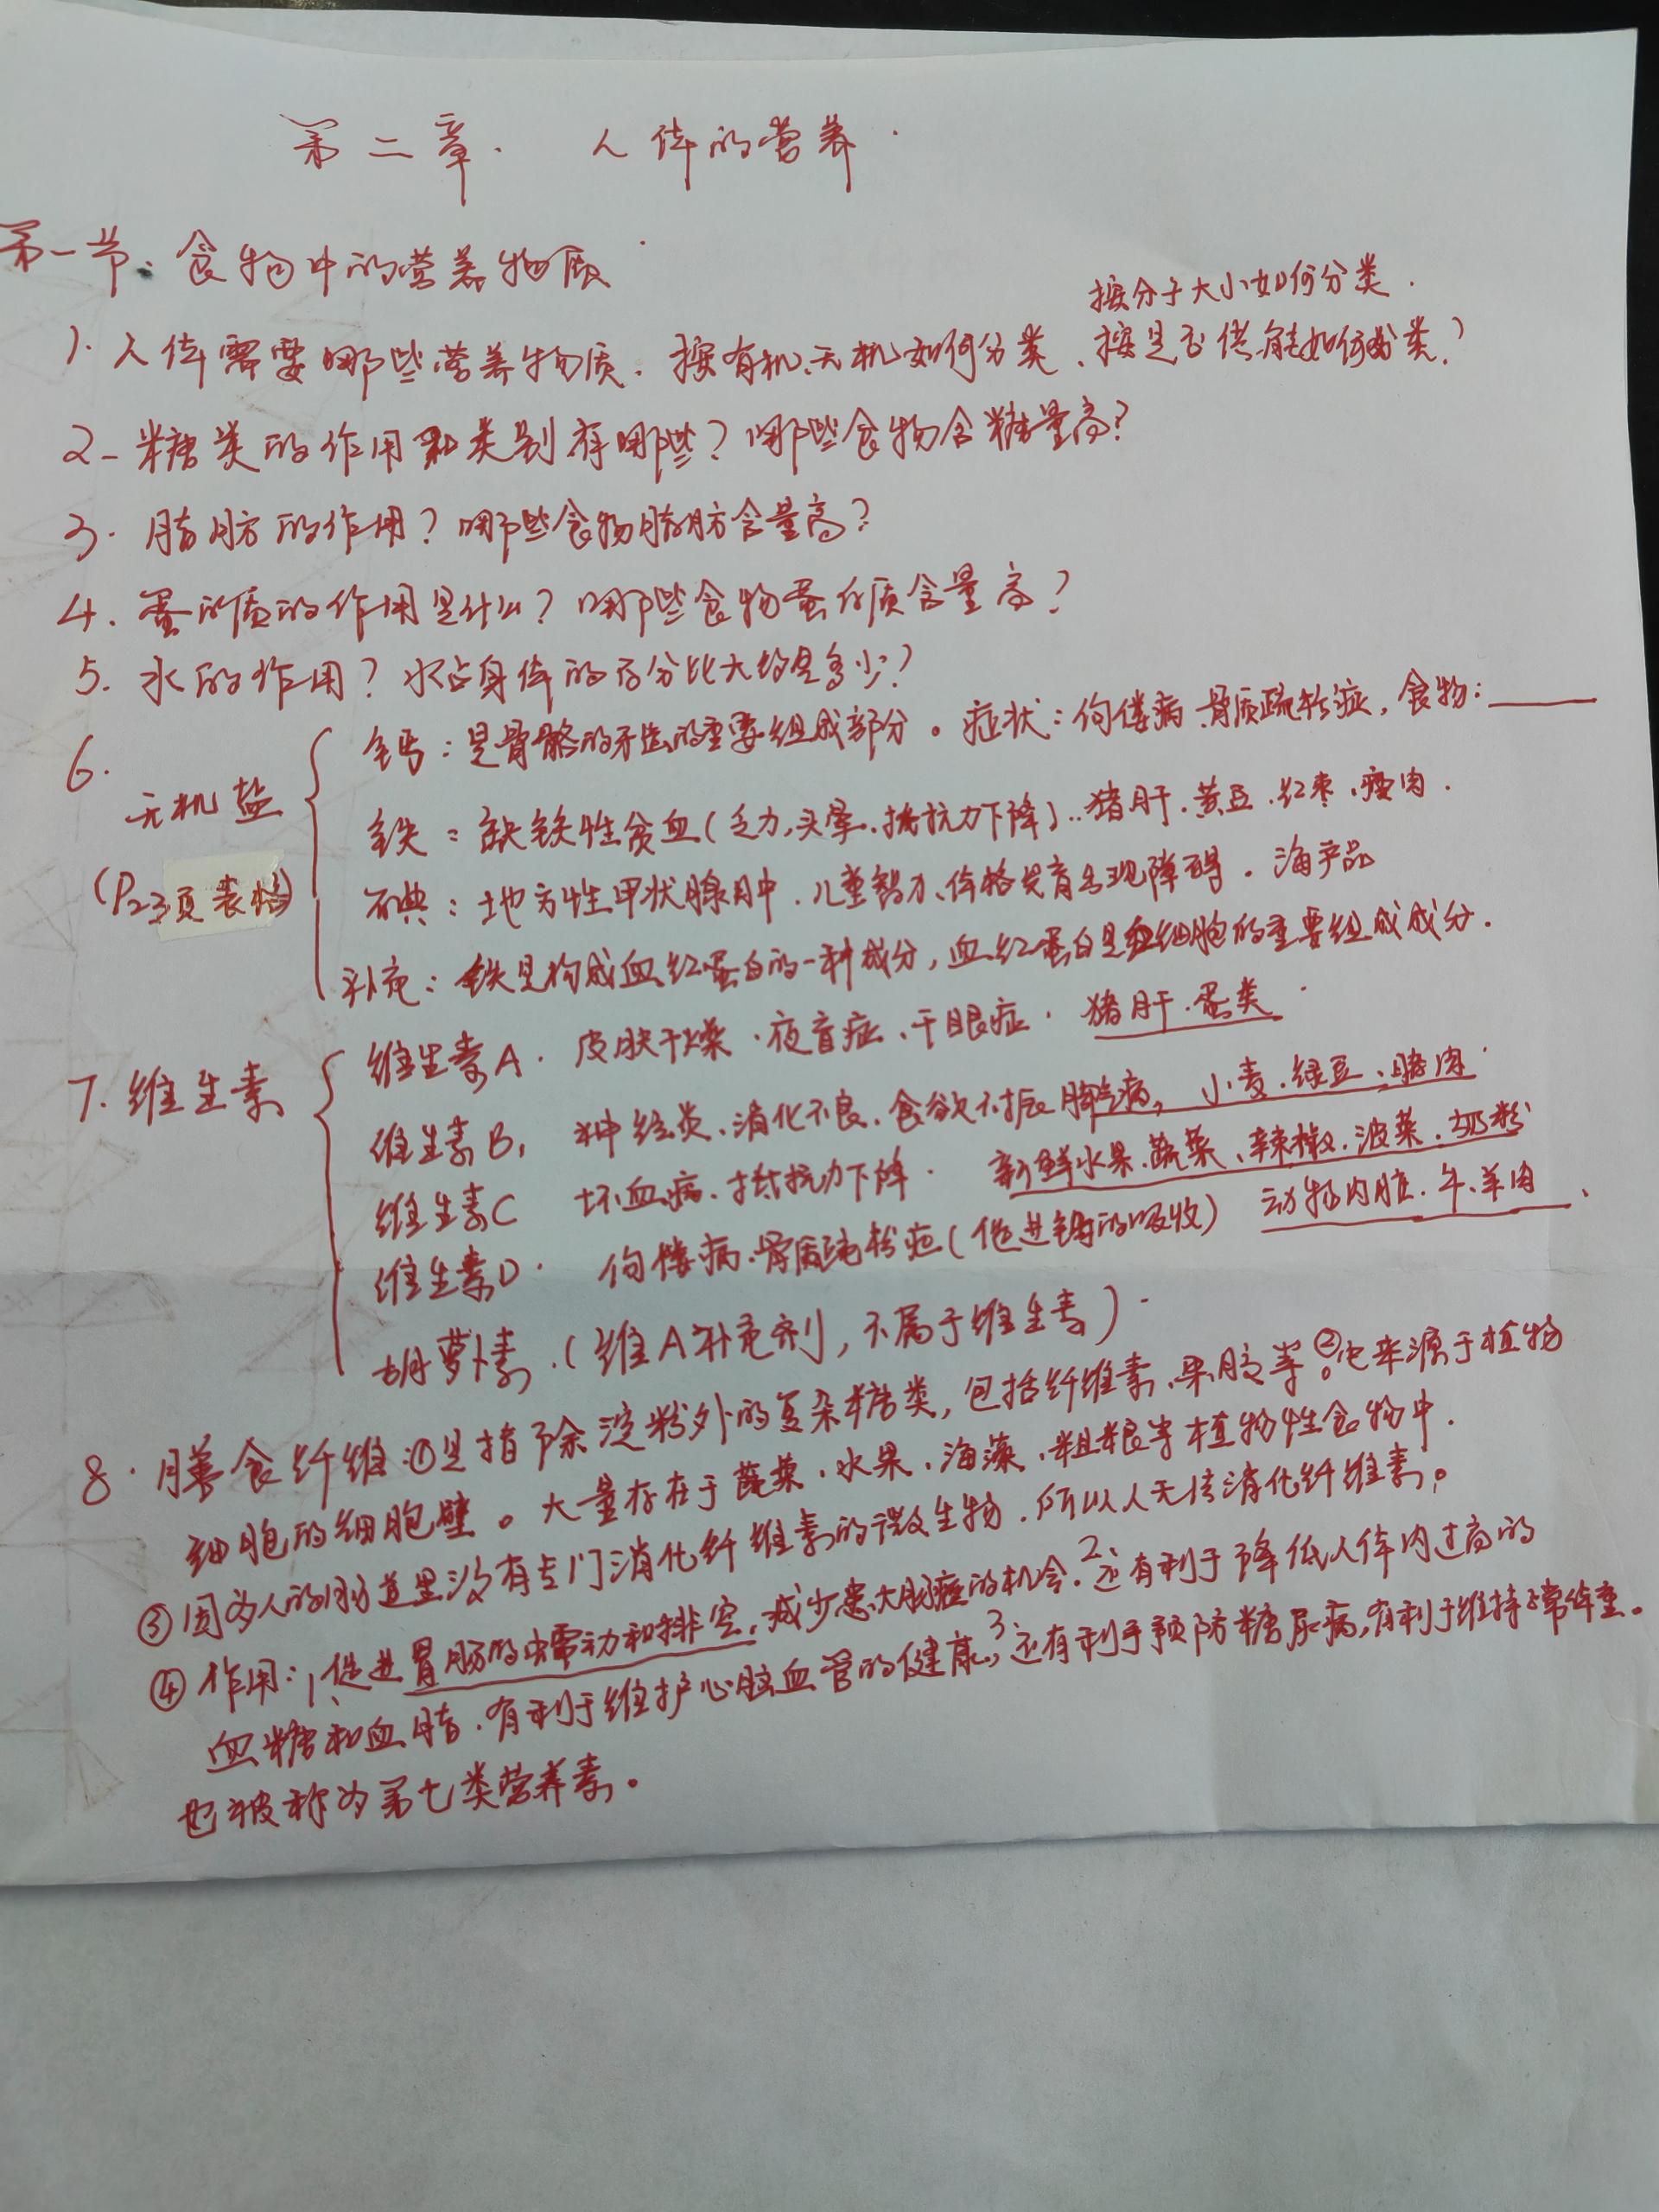 第二章. 人体的营养.
第一节: 食物中的营养物质
按分子大小如何分类.
1. 人体需要哪些营养物质. 按有机、无机如何分类、按是否供能如何分类?
2- 糖类的作用和类别有哪些? 哪些食物含糖量高?
3. 脂肪的作用? 哪些食物脂肪含量高?
4. 蛋白质的作用是什么? 哪些食物蛋白质含量高?
5. 水的作用? 水占身体的百分比大约是多少?
6. 无机盐
(P23页表格)
钙: 是骨骼的牙齿的重要组成部分。症状: 佝偻病、骨质疏松症, 食物:
铁: 缺铁性贫血(乏力,头晕.抵抗力下降)..猪肝.黄豆.红枣、瘦肉.
碘: 地方性甲状腺肿. 儿童智力、体格发育出现障碍. 海产品
补充: 铁是构成血红蛋白的一种成分, 血红蛋白是红细胞的重要组成成分.
7. 维生素
维生素A. 皮肤干燥.夜盲症、干眼症. 猪肝.蛋类.
维生素B1 神经炎、消化不良.食欲不振脚气病, 小麦.绿豆、瘦肉.
维生素C 坏血病.抵抗力下降. 新鲜水果.蔬菜、辣椒.波菜.奶粉
维生素D. 佝偻病.骨质疏松症(促进钙的吸收) 动物内脏.牛、羊肉、
胡萝卜素.(维A补充剂, 不属于维生素).
8. 膳食纤维:①是指除淀粉外的复杂糖类, 包括纤维素、果胶等。②它来源于植物
细胞的细胞壁。大量存在于蔬菜、水果、海藻、粗粮等植物性食物中.
③因为人的肠道里没有专门消化纤维素的微生物.所以人无法消化纤维素。
④作用: 1、促进胃肠的蠕动和排空,减少患大肠癌的机会.2还有利于降低人体内过高的
血糖和血脂.有利于维护心脑血管的健康,3还有利于预防糖尿病,有利于维持正常体重。
也被称为第七类营养素。